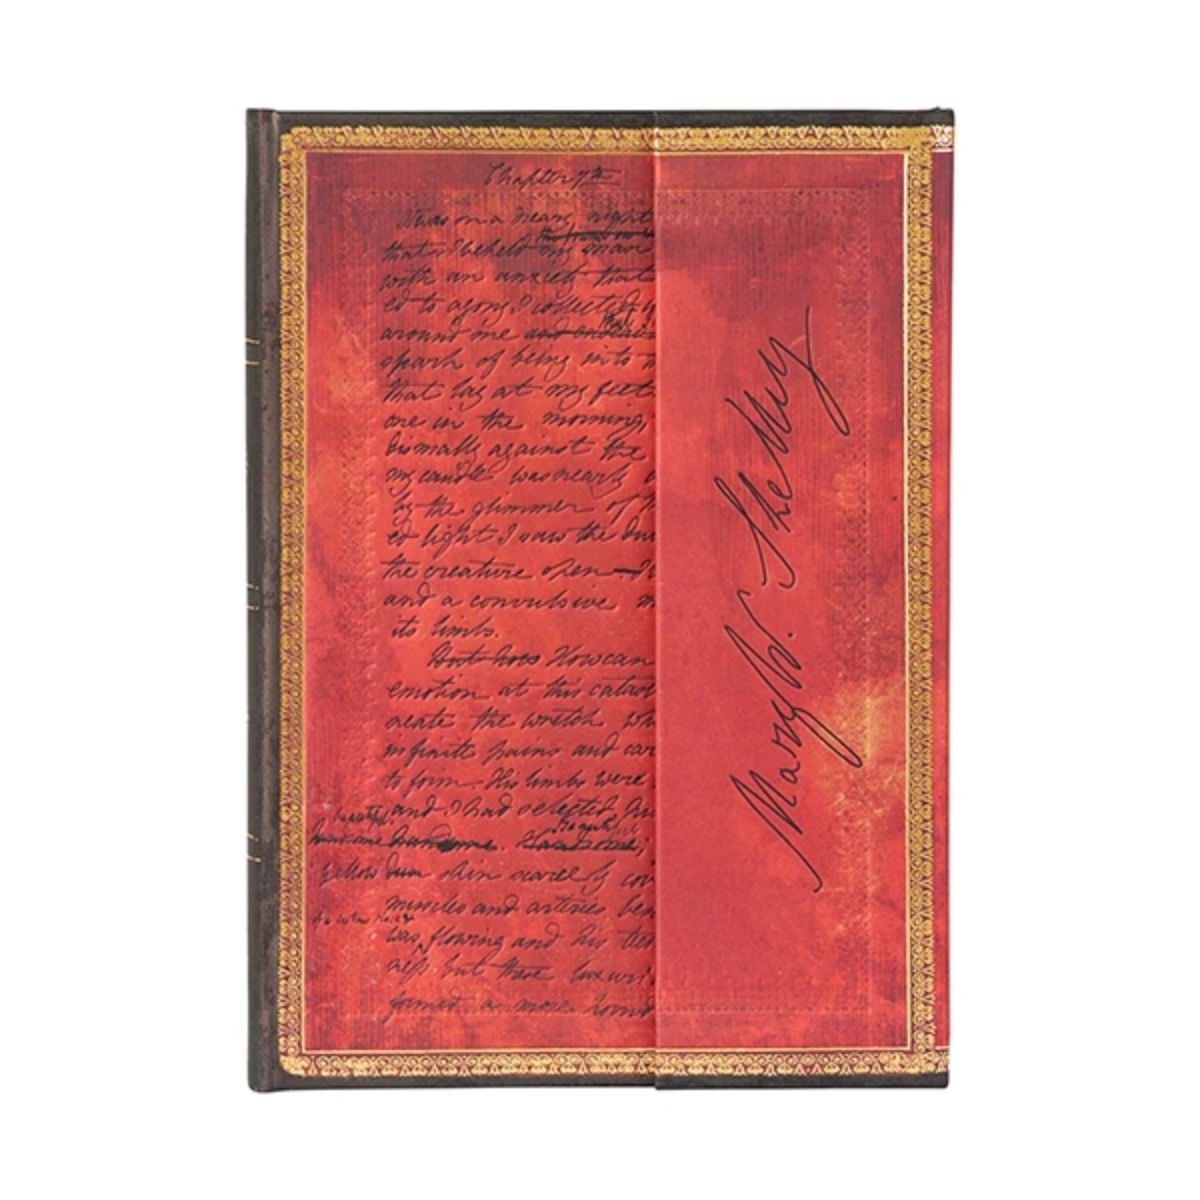 Chapter 7th
It was on a dreary night
that I beheld my man
with an anxiety that
ed to agony I collected
around me and endea
spark of being into
that lay at my feet
one in the morning,
dismally against the
my candle was nearly
by the glimmer of
ed light I saw the
the creature open
and a convulsive
its limbs.
But how How can
emotion at this catas
neate the wretch wh
infinite pains and car
to form. His limbs were
and I had selected
handsome. Handsome,
yellow dun skin scarcely cov
muscles and arteries ben
was flowing and his
ness but these luxuri
formed a more
Mary W. Shelley